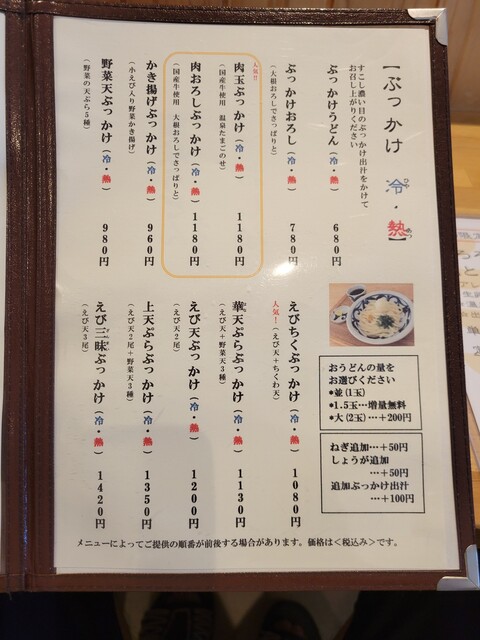 【ぶっかけ 冷・熱】
ひや
あつ
すこし濃い目のぶっかけ出汁をかけて
お召し上がりください
ぶっかけうどん（冷・熱） 680円
ぶっかけおろし（冷・熱） 780円
（大根おろしでさっぱりと）
人気!!
肉玉ぶっかけ（冷・熱） 1180円
（国産牛使用 温泉たまごのせ）
肉おろしぶっかけ（冷・熱） 1180円
（国産牛使用 大根おろしでさっぱりと）
かき揚げぶっかけ（冷・熱） 960円
（小えび入り野菜かき揚げ）
野菜天ぶっかけ（冷・熱） 980円
（野菜の天ぷら5種）
えびちくぶっかけ（冷・熱） 1080円
人気！（えび天＋ちくわ天）
華天ぷらぶっかけ（冷・熱） 1130円
（えび天＋野菜天3種）
えび天ぶっかけ（冷・熱） 1200円
（えび天2尾）
上天ぷらぶっかけ（冷・熱） 1350円
（えび天2尾＋野菜天3種）
えび三昧ぶっかけ（冷・熱） 1420円
（えび天3尾）
おうどんの量を
お選びください
*並(1玉)
*1.5玉…増量無料
*大(2玉)…+200円
ねぎ追加…+50円
しょうが追加
…+50円
追加ぶっかけ出汁
…+100円
メニューによってご提供の順番が前後する場合があります。価格は＜税込み＞です。